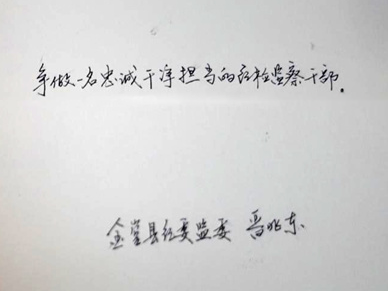 争做一名忠诚干净担当的纪检监察干部.
金堂县纪委监委 晋兆东